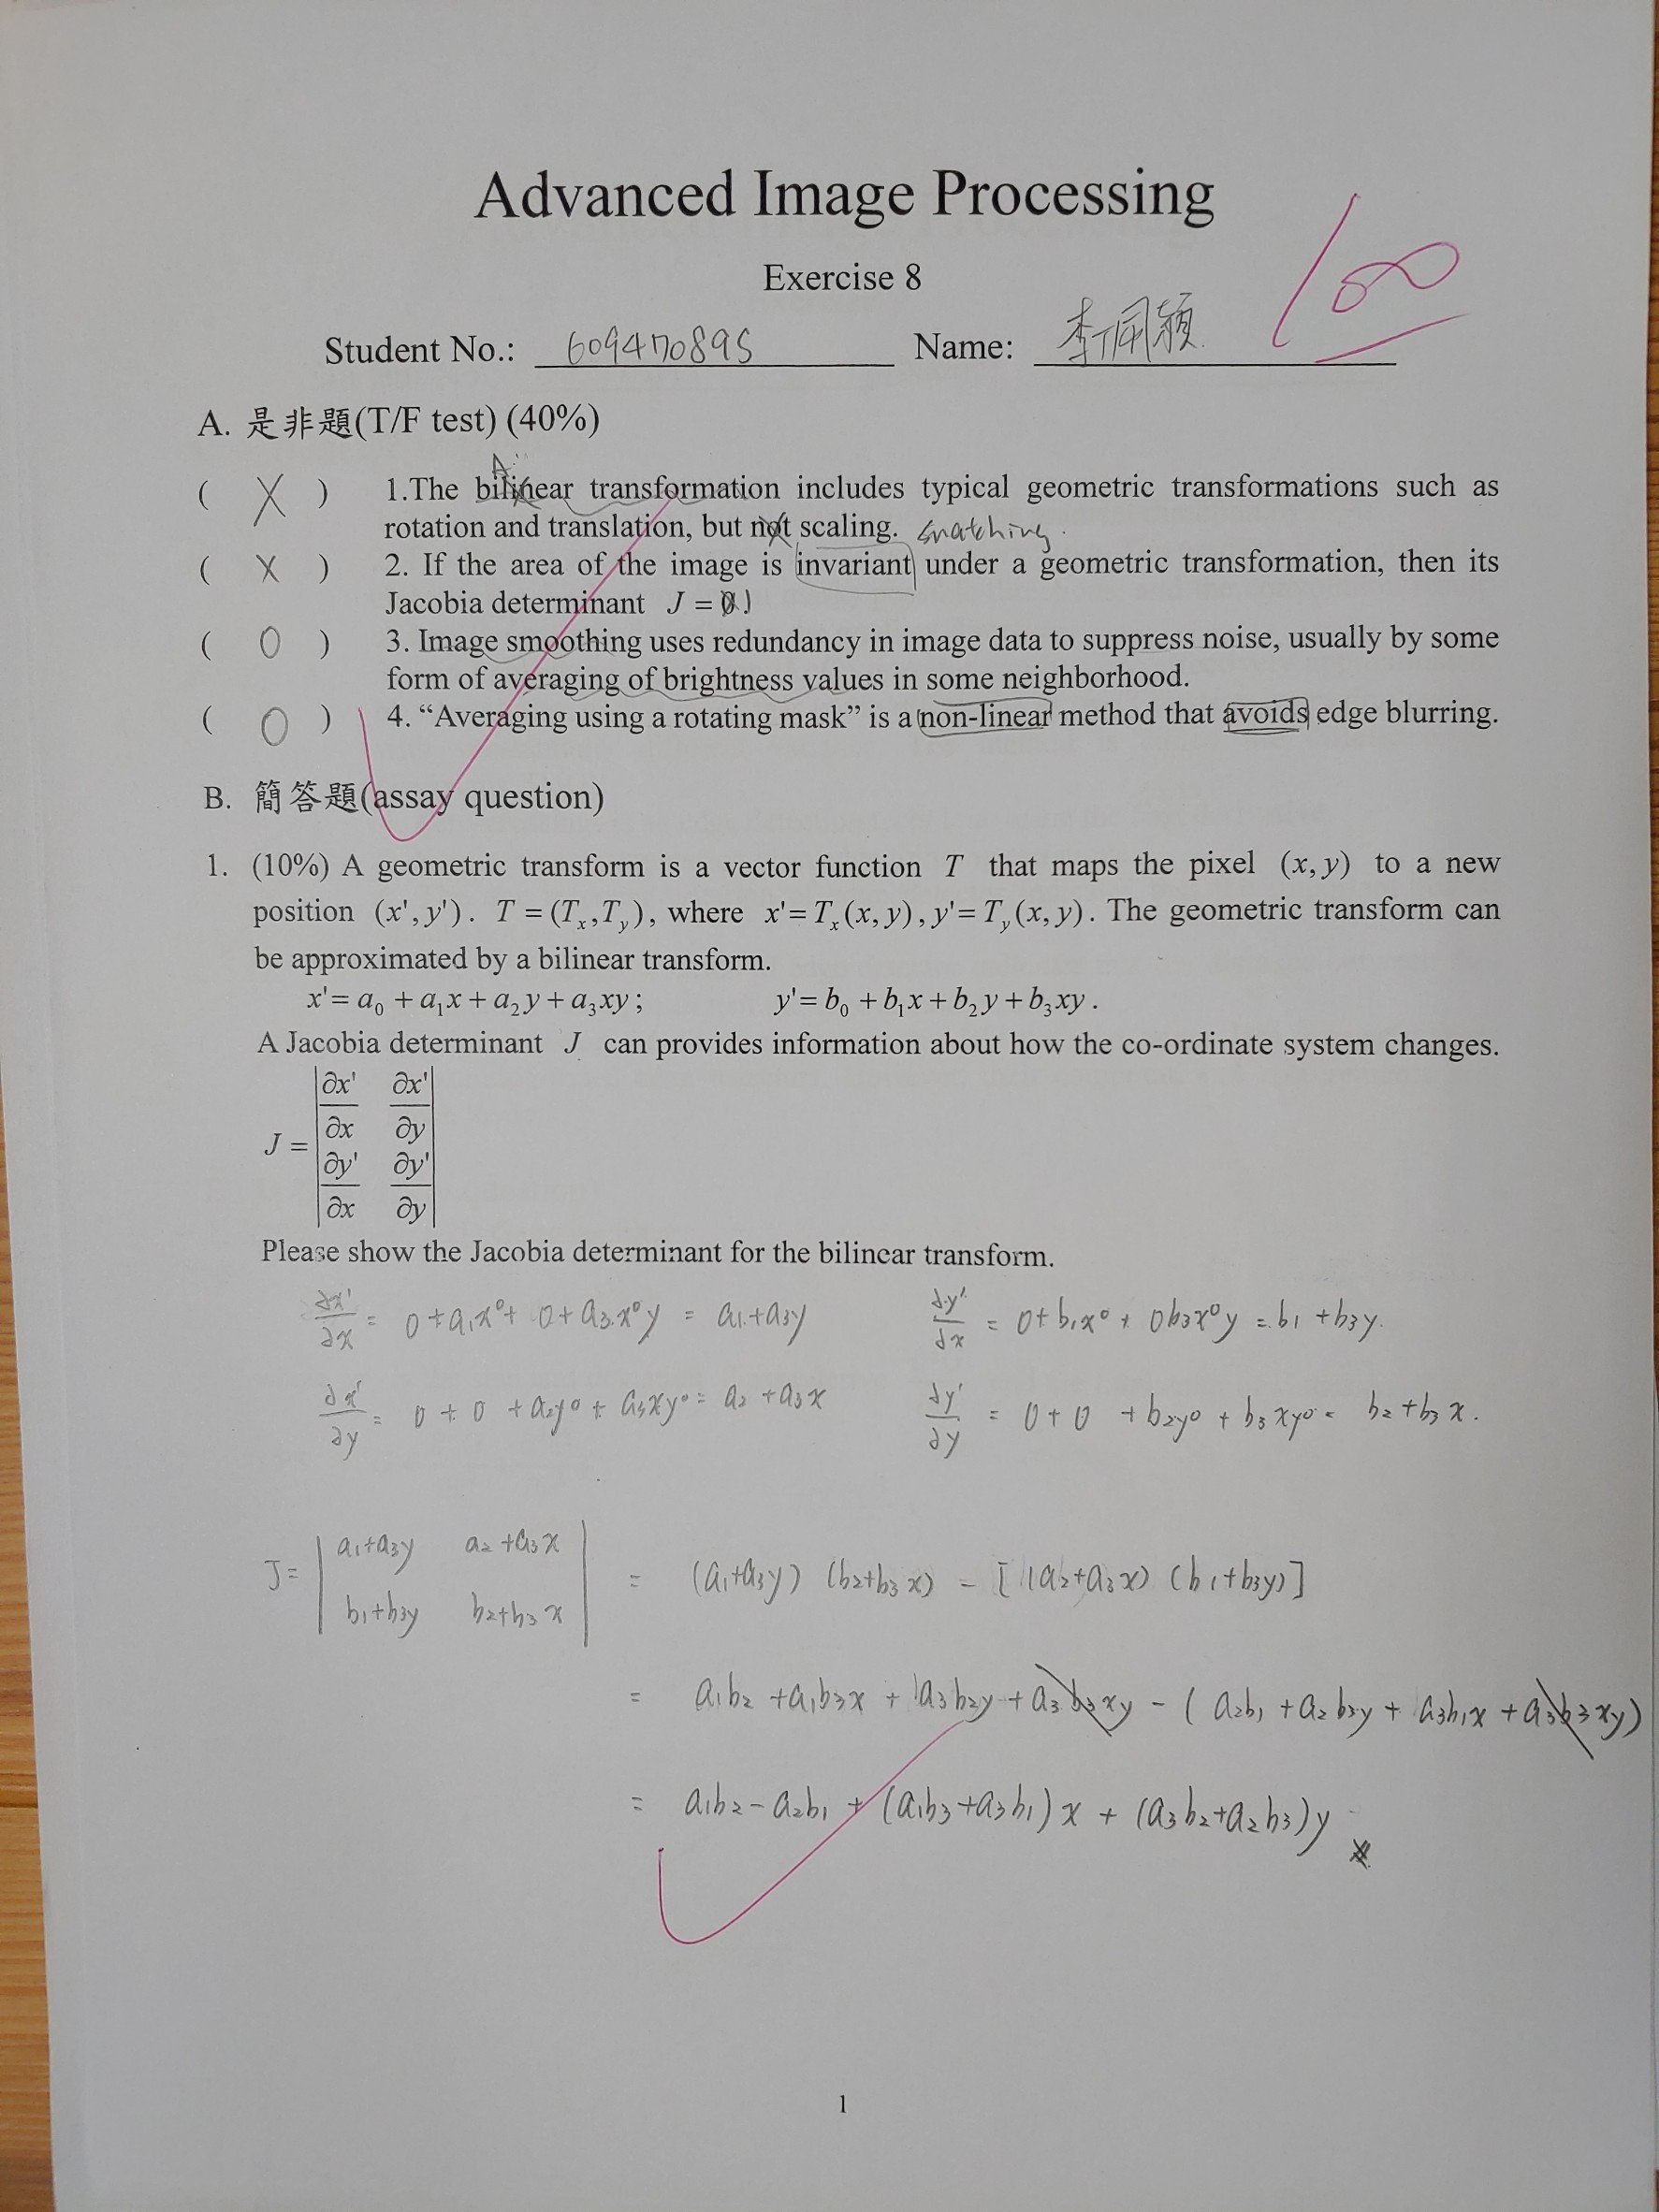 Advanced Image Processing
Exercise 8
100
Student No.: 60947089S Name: 李佩穎
A. 是非題(T/F test) (40%)
( X ) 1.The bilinear transformation includes typical geometric transformations such as
rotation and translation, but not scaling.
( X ) 2. If the area of the image is invariant under a geometric transformation, then its
Jacobia determinant J = 0 1
( O ) 3. Image smoothing uses redundancy in image data to suppress noise, usually by some
form of averaging of brightness values in some neighborhood.
( O ) 4. “Averaging using a rotating mask” is a non-linear method that avoids edge blurring.
B. 簡答題(assay question)
1. (10%) A geometric transform is a vector function T that maps the pixel (x, y) to a new
position (x', y'). T = (Tx,Ty), where x'= Tx(x, y), y'= Ty(x, y). The geometric transform can
be approximated by a bilinear transform.
x'= a0 + a1x + a2y + a3xy; y'= b0 + b1x + b2y + b3xy.
A Jacobia determinant J can provides information about how the co-ordinate system changes.
J = |∂x'/∂x ∂x'/∂y|
|∂y'/∂x ∂y'/∂y|
Please show the Jacobia determinant for the bilinear transform.
∂x'/∂x = 0 + a1x⁰ + 0 + a3x⁰y = a1 + a3y ∂y'/∂x = 0 + b1x⁰ + 0b3x⁰y = b1 + b3y.
∂x'/∂y = 0 + 0 + a2y⁰ + a3xy⁰ = a2 + a3x ∂y'/∂y = 0 + 0 + b2y⁰ + b3xy⁰ = b2 + b3x.
J = |a1+a3y a2+a3x| = (a1+a3y) (b2+b3x) − [(a2+a3x) (b1+b3y)]
|b1+b3y b2+b3x|
= a1b2 + a1b3x + a3b2y + a3b3xy − (a2b1 + a2b3y + a3b1x + a3b3xy)
= a1b2 − a2b1 + (a1b3+a3b1)x + (a3b2+a2b3)y
1